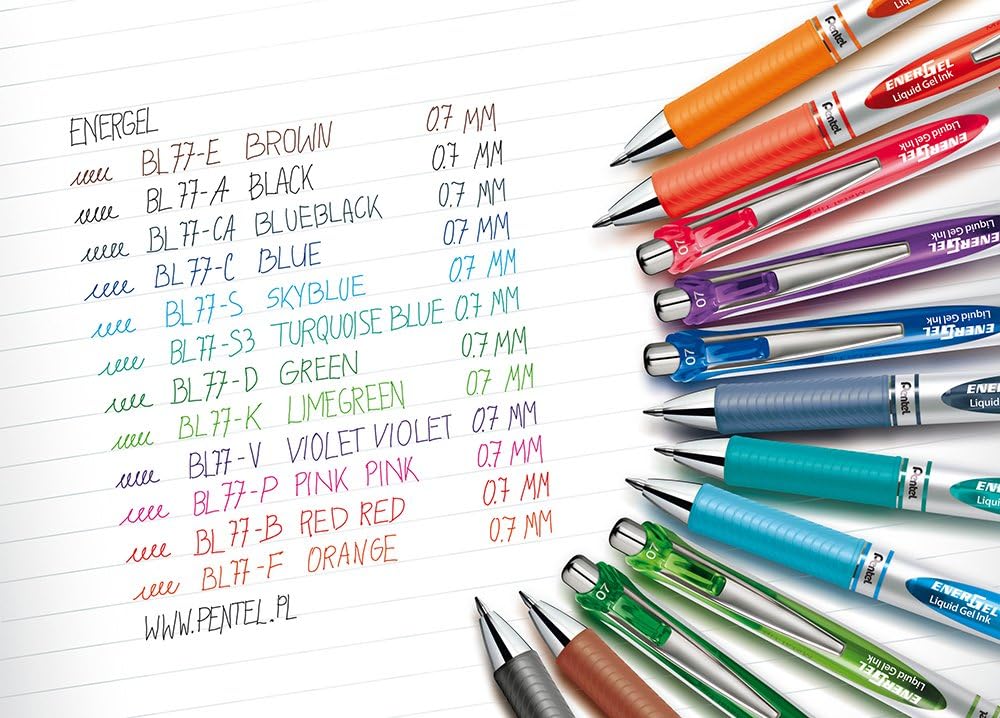 ENERGEL
BL77-E BROWN 0.7 MM
BL77-A BLACK 0.7 MM
BL77-CA BLUEBLACK 0.7 MM
BL77-C BLUE 0.7 MM
BL77-S SKYBLUE 0.7 MM
BL77-S3 TURQUOISE BLUE 0.7 MM
BL77-D GREEN 0.7 MM
BL77-K LIMEGREEN 0.7 MM
BL77-V VIOLET VIOLET 0.7 MM
BL77-P PINK PINK 0.7 MM
BL77-B RED RED 0.7 MM
BL77-F ORANGE 0.7 MM
WWW.PENTEL.PL
Pentel
Liquid Gel Ink
Pentel
ENERGEL
Liquid Gel Ink
07
ENERGEL
Liquid Gel Ink
07
ENERGEL
Liquid Gel Ink
07
ENERGEL
Liquid Gel Ink
Pentel
ENE
Liquid
Pentel
ENE
Liqui
Pentel
ENERGEL
Liquid Gel Ink
07
ENERGEL
Liquid Gel Ink
07